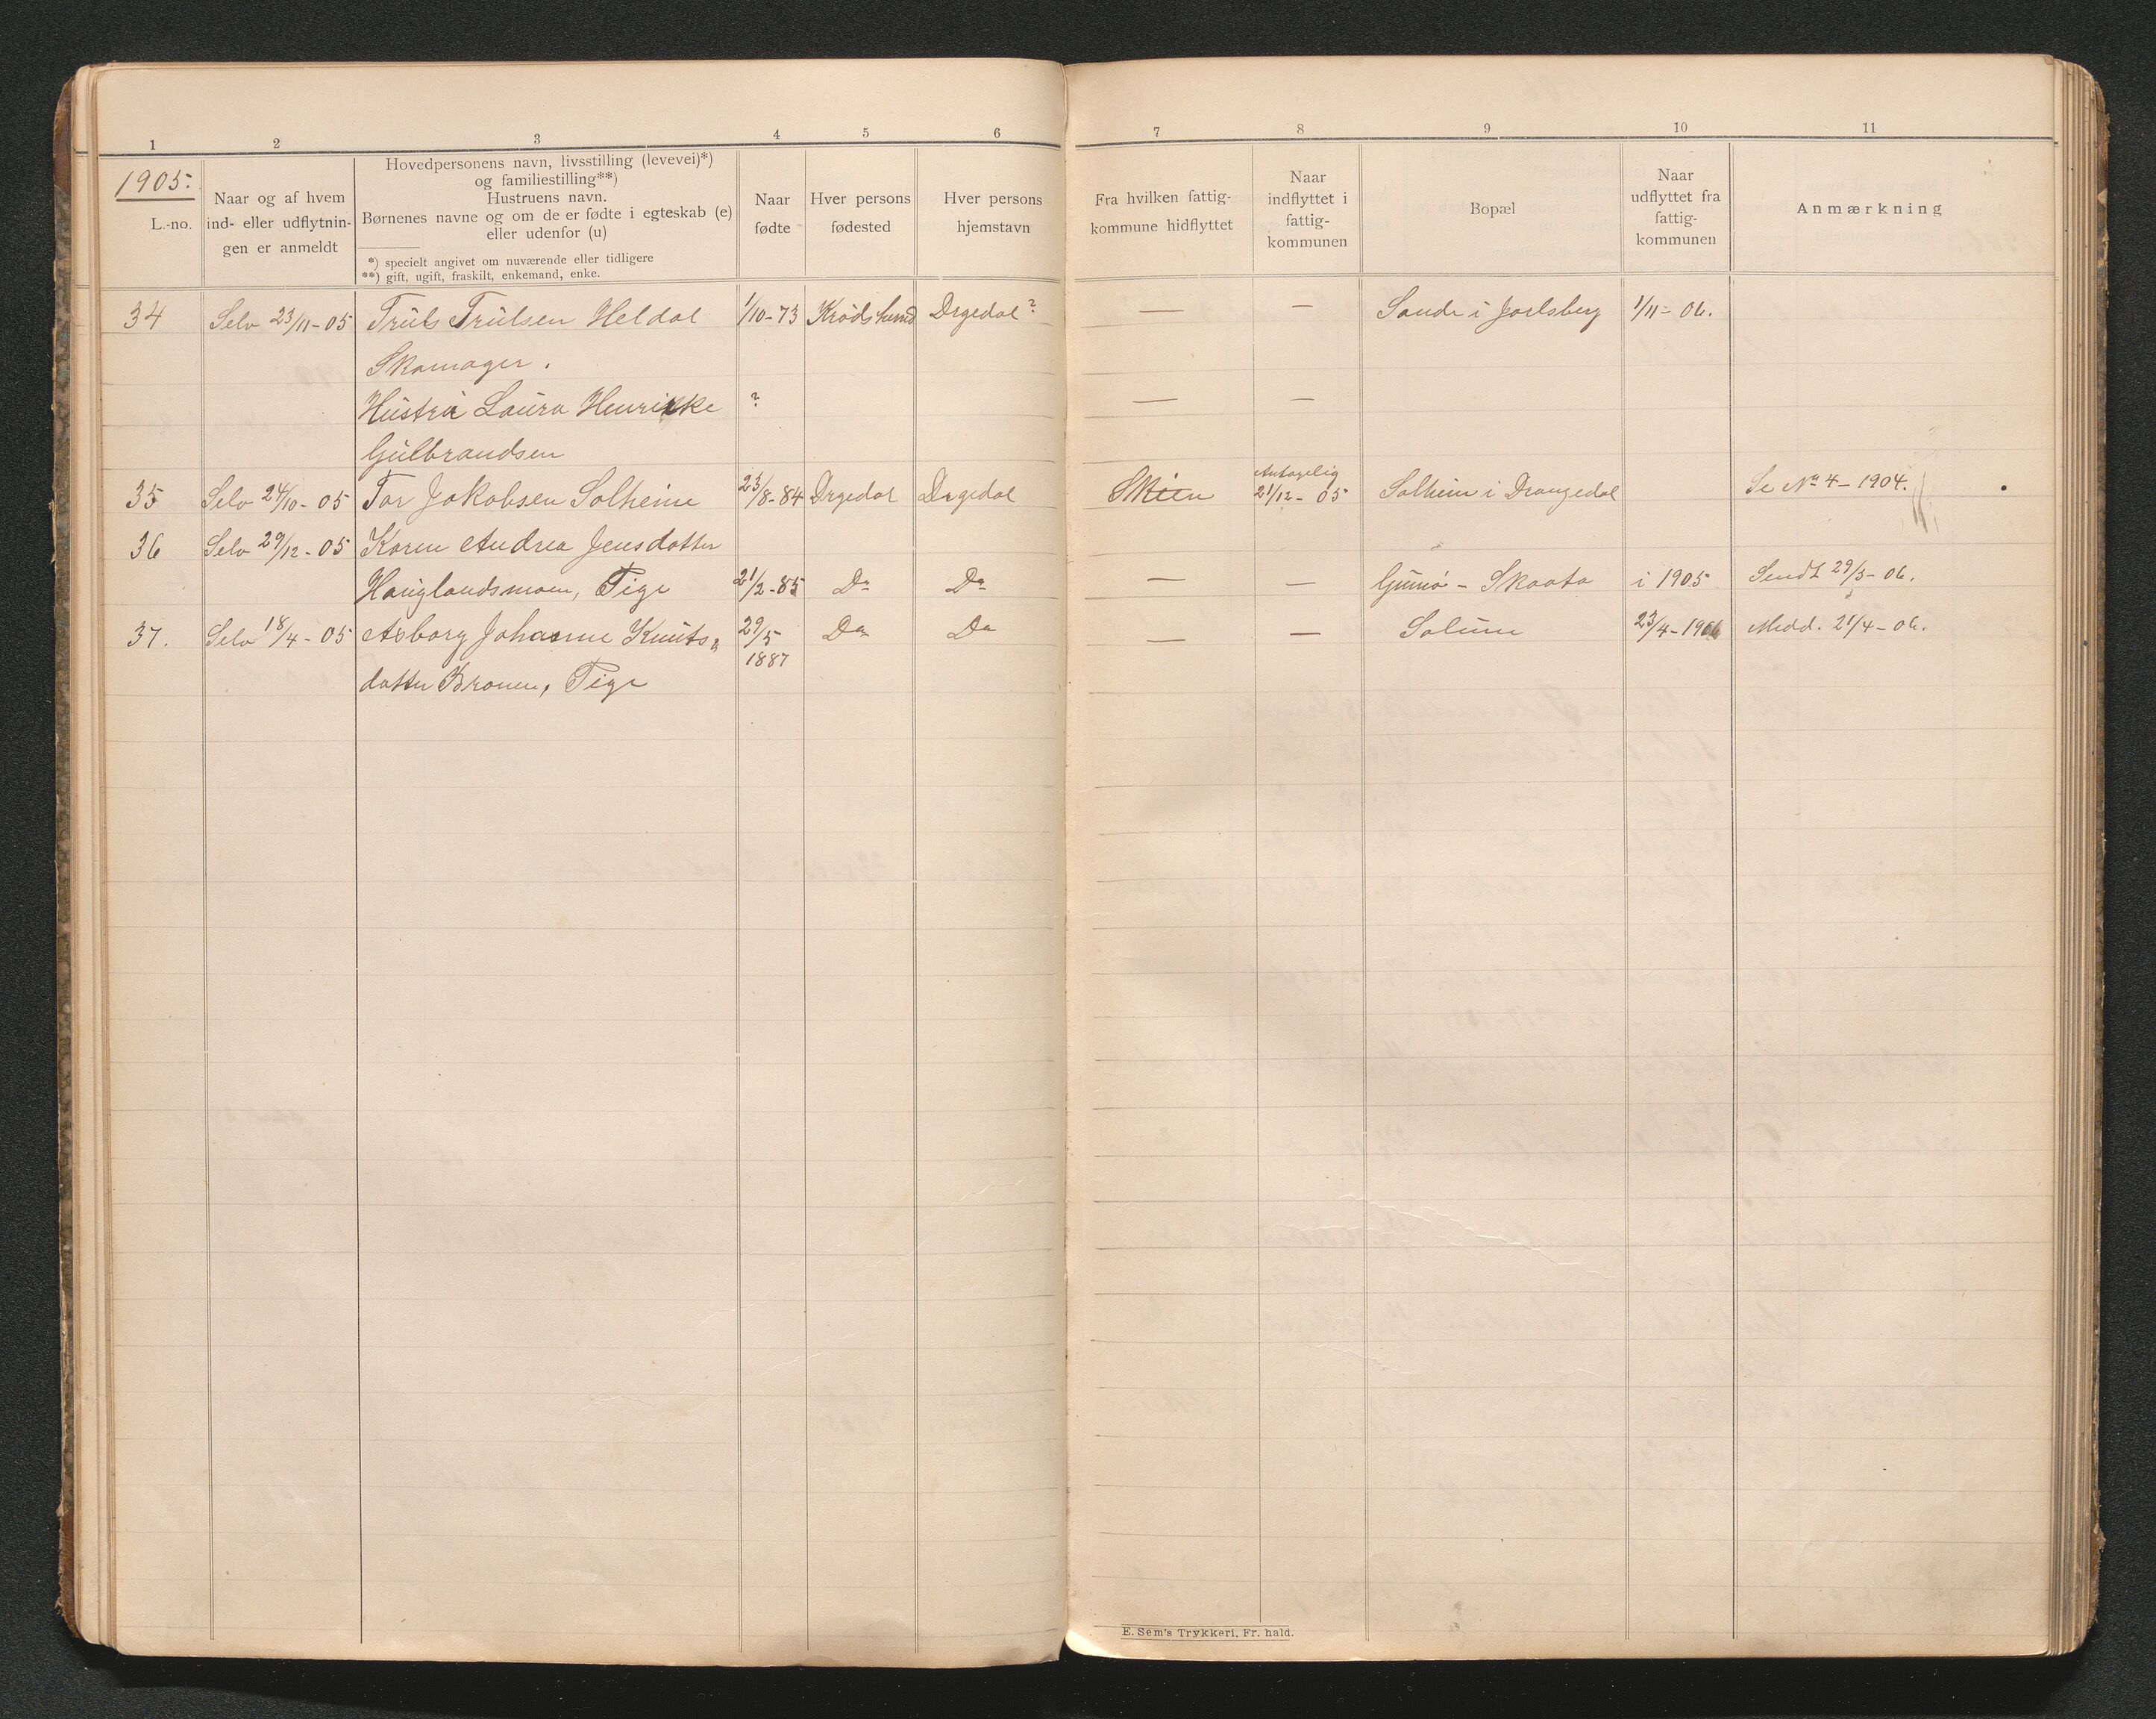 1 2 3 4 5 6 7 8 9 10 11
1905.
L.-no.
Naar og af hvem
ind- eller udflytnin-
gen er anmeldt
Hovedpersonens navn, livsstilling (levevei)*)
og familiestilling**)
Hustruens navn.
Børnenes navne og om de er fødte i egteskab (e)
eller udenfor (u)
*) specielt angivet om nuværende eller tidligere
**) gift, ugift, fraskilt, enkemand, enke.
Naar
fødte
Hver persons
fødested
Hver persons
hjemstavn
Fra hvilken fattig-
kommune hidflyttet
Naar
indflyttet i
fattig-
kommunen
Bopæl
Naar
udflyttet fra
fattig-
kommunen
Anmærkning
34 Selv 23/11-05 Truls Trulsen Heldal 1/10-73 Krødsherred Drgedal? — — Sande i Jarlsberg 1/11-06.
Skomager.
Hustru Laura Henrikke ? — —
Gulbrandsen
35 Selv 24/10-05 Tor Jakobsen Solheim 23/8-84 Drgedal Drgedal Skien Antagelig 21/12-05 Solheim i Drangedal Se No 4-1904.
36 Selv 29/12-05 Karen Andrea Jensdatter
Hauglandsmoen, Pige 21/2-85 Do Do — — Gumø - Skaatø i 1905 Sendt 29/3-06.
37. Selv 18/4-05 Asborg Johanne Knuts- 29/5 1887 Do Do — — Solum 23/4-1906 Medd. 21/4-06.
datter Broen, Pige
E. Sem's Trykkeri, Fr. hald.